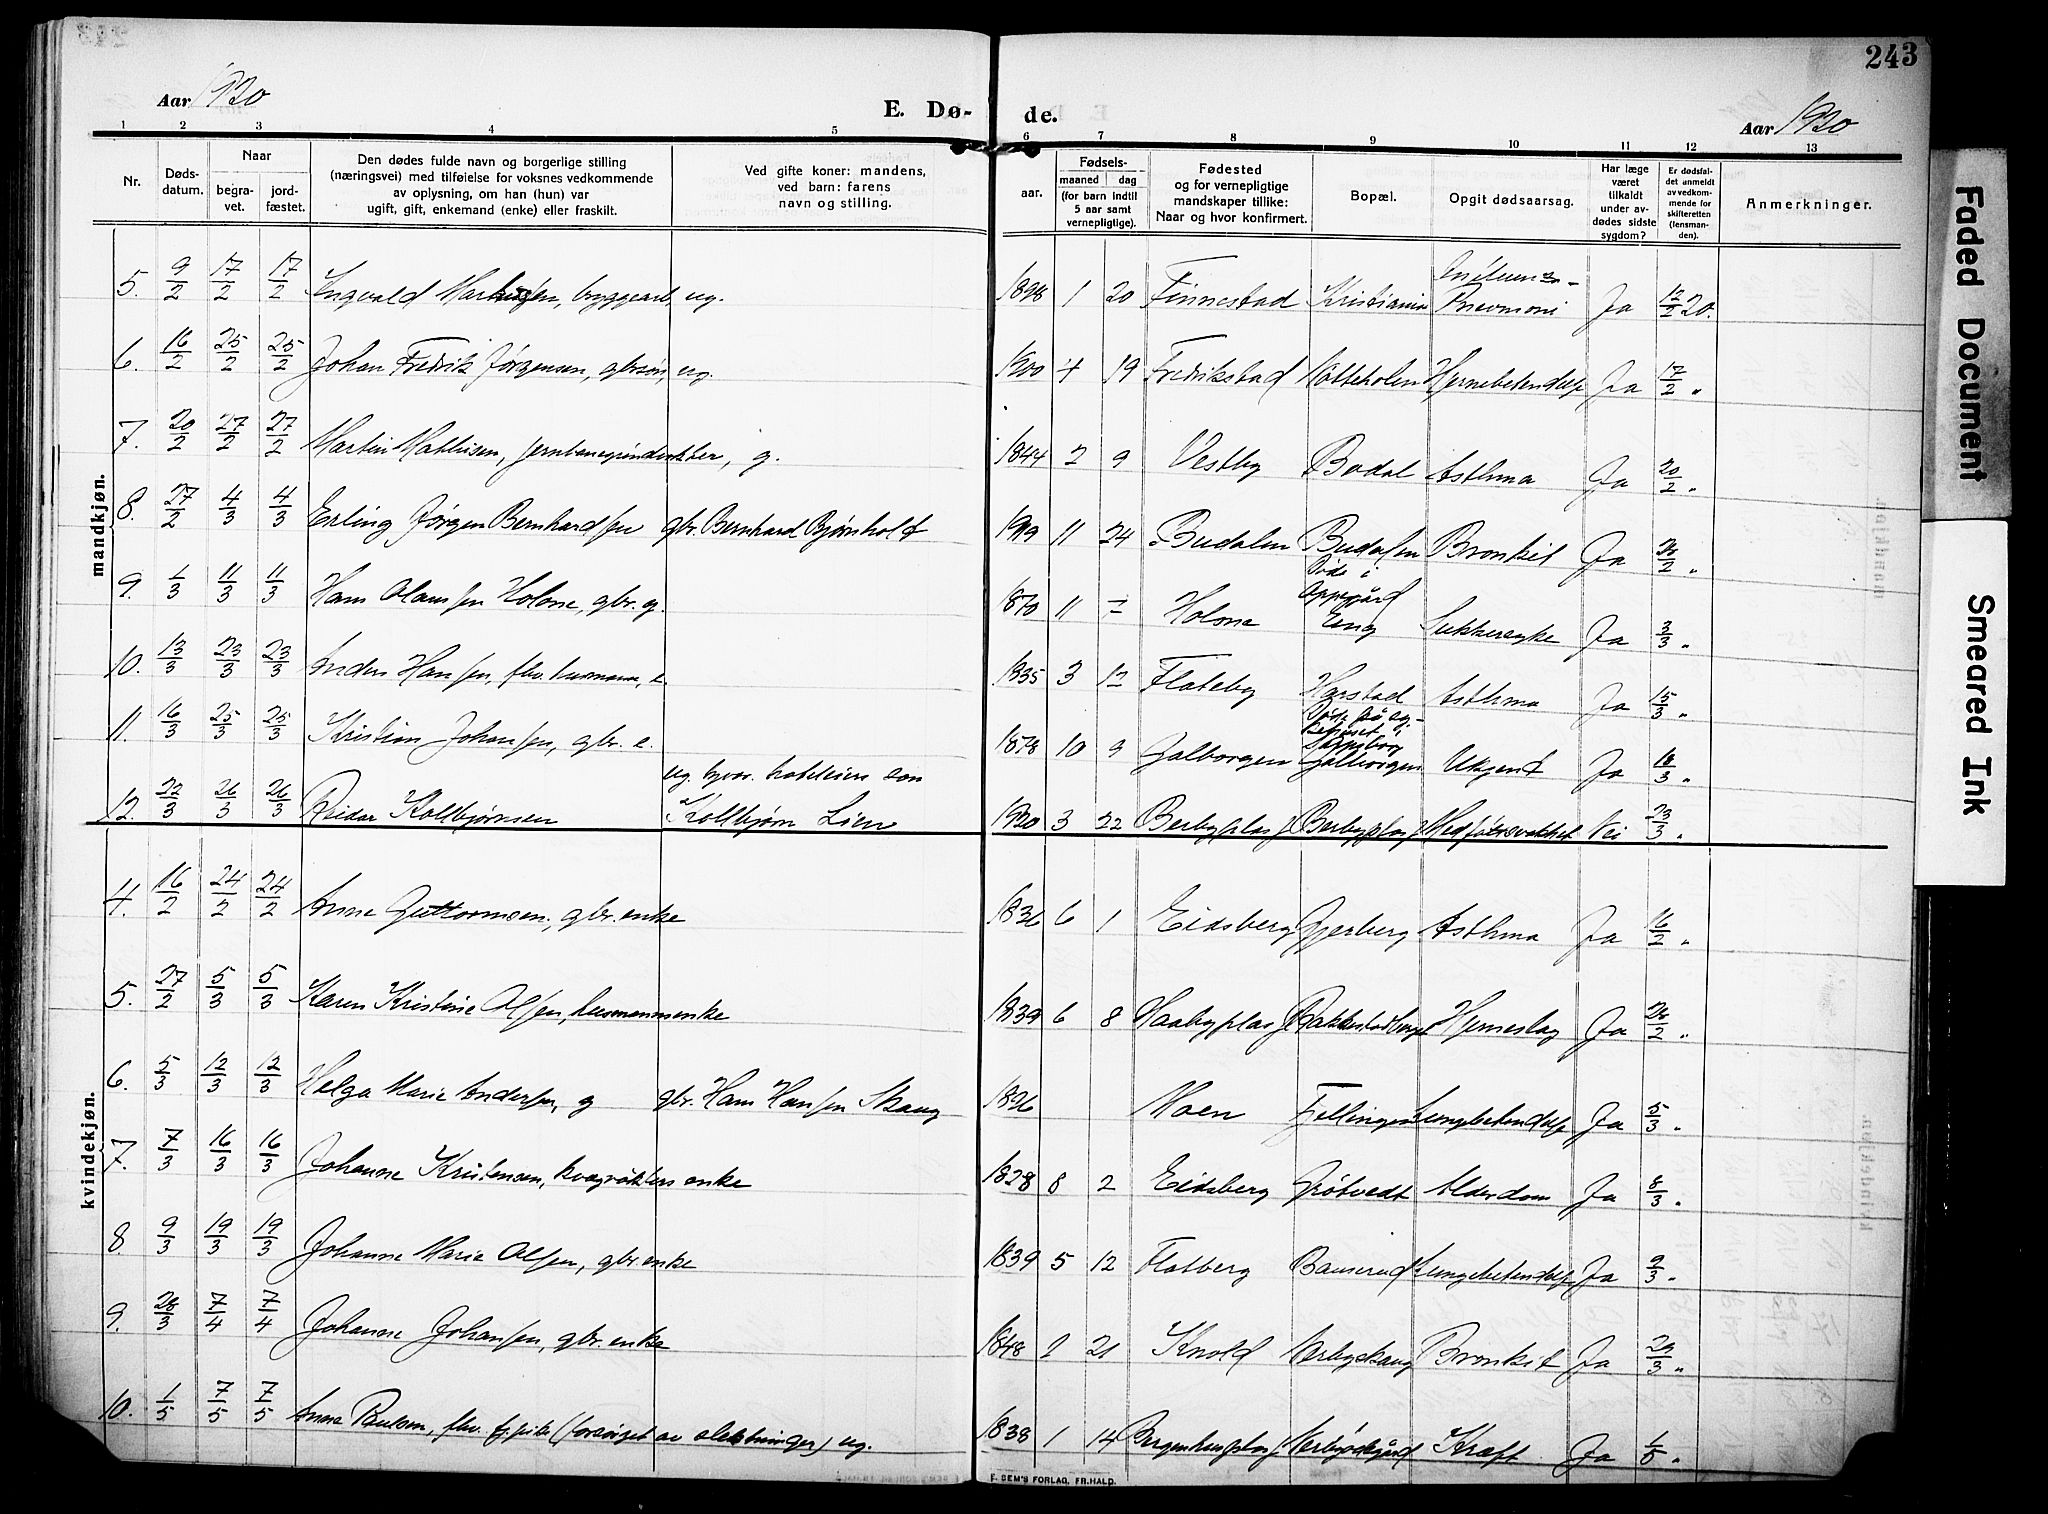 243
Aar 1920
E. Dø-
de.
Aar 1920
1 2 3 4 5 6 7 8 9 10 11 12 13
Nr.
Døds-
datum.
Naar
begra-
vet.
jord-
fæstet.
Den dødes fulde navn og borgerlige stilling
(næringsvei) med tilføielse for voksnes vedkommende
av oplysning, om han (hun) var
ugift, gift, enkemand (enke) eller fraskilt.
Ved gifte koner: mandens,
ved barn: farens
navn og stilling.
Fødsels-
aar.
maaned dag
(for barn indtil
5 aar samt
vernepligtige).
Fødested
og for vernepligtige
mandskaper tillike:
Naar og hvor konfirmert.
Bopæl.
Opgit dødsaarsag.
Har læge
været
tilkaldt
under av-
dødes sidste
sygdom?
Er dødsfal-
det anmeldt
av vedkom-
mende for
skifteretten
(lensman-
den).
Anmerkninger.
mandkjøn.
5. 9/2 17/2 17/2 Ingvald, ug. 1898 1 20 Finnestad Kristiania Pnevmoni Ja 12/2 20.
6. 16/2 25/2 25/2 Johan Fredrik Jørgensen, gbrsøn, ug. 1900 4 19 Fredrikstad Hjernebetendelse Ja 17/2 "
7. 20/2 27/2 27/2 Martin Mathisen, g. 1844 2 9 Vestby Bodal Asthma Ja 20/2 "
8. 27/2 4/3 4/3 Erling Jørgen Bernhardsen gbr. Bernhard Bjørnholt 1919 11 24 Budalen Budalen Bronkit Ja 28/2 "
9. 1/3 11/3 11/3 Hans Olaussen Holone, gbr. g. 1870 11 7 Holone Døde i
Oppegård
Eng Sukkersyke Ja 3/3 "
10. 13/3 23/3 23/3 Anders Hansen, fhv. husmann, e. 1835 3 12 Flateby Harstad Asthma Ja 15/3 "
11. 16/3 25/3 25/3 Kristian Johansen, gbr. e. 1878 10 9 Galborgen Døde på sy-
kehuset i
Sarpsborg
Galborgen Ukjent Ja 18/3 "
12. 22/3 26/3 26/3 Reidar Kolbjørnsen
Kolbjørn Lien 1920 3 22 Berbyplass Berbyplass Medfødt svakhet Nei 23/3 "
kvindekjøn.
4. 16/2 24/2 24/2 Anne Guttormsen, gbr. enke 1836 6 1 Eidsberg Gjerberg Asthma Ja 16/2 "
5. 27/2 5/3 5/3 Karen Kristine Olsen, husmannsenke 1839 6 8 Haabyplass Rakkestadberget Hjerneslag Ja 28/2 "
6. 5/3 12/3 12/3 Helga Marie Andersen, g gbr. Hans Hansen Skaug 1896 Moen Fjellingen Lungebetendelse Ja 5/3 "
7. 7/3 16/3 16/3 Johanne Kristensen, kvægrøkters enke 1828 8 2 Eidsberg Grøtvedt Alderdom Ja 8/3 "
8. 9/3 19/3 19/3 Johanne Marie Olsen, gbr. enke 1839 5 12 Flatberg Bauserud Lungebetendelse Ja 9/3 "
9. 28/3 7/4 7/4 Johanne Johansen, gbr. enke 1848 2 21 Knold Bronkit Ja 29/3 "
10. 1/5 7/5 7/5 Anne Paulsen, fhv. (forsørget av slektninger) ug. 1838 1 14 Kræft Ja 1/5 "
F. BEM'S FORLAG, FR.HALD.
Faded Document
Smeared Ink